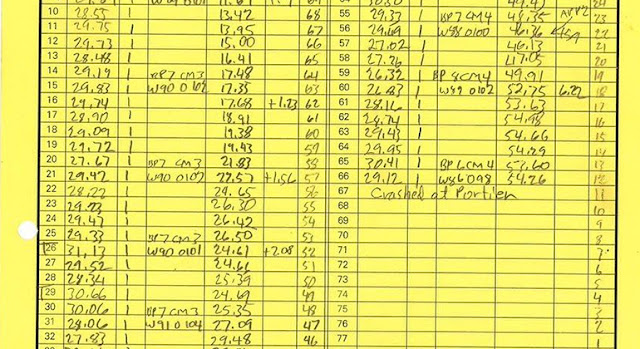 10 28.55 1 13.42 68 55 29.37 1 BP7CM4 48.35 23
11 29.75 1 13.95 67 56 1 W98 0100 46.36 22
12 29.73 1 15.00 66 57 27.02 1 46.13
13 28.48 1 16.41 65 58 27.26 1 47.05 20
14 29.19 1 BP7 CM3 17.48 64 59 26.32 1 BP8CM4 49.91 19
15 29.83 1 W90 0102 17.35 63 60 26.83 1 W99 0102 52.75 6.22 18
16 29.74 1 17.68 +1.23 62 61 28.16 1 53.63 17
17 28.90 1 18.91 61 62 28.74 1 54.98 16
18 29.09 1 19.38 60 63 29.43 1 54.66 15
19 29.72 1 19.43 59 64 29.95 1 54.29 14
20 27.67 1 BP7 CM3 21.83 58 65 30.41 1 BP6CM4 53.60 13
21 29.42 1 W90 0102 22.57 +1.56 57 66 29.12 1 W86098 54.26 12
22 28.22 1 56 67 Crashed at Portier 11
23 29.23 1 26.30 55 68 10
24 29.47 1 26.42 54 69 9
25 29.33 1 BP7CM3 26.50 53 70 8
26 31.13 1 W90 0102 24.61 +2.08 52 71 7
27 29.52 1 24.61 51 72 6
28 28.34 1 25.39 50 73 5
29 30.66 1 24.69 49 74 4
30 30.06 1 BP7CM3 25.35 48 75 3
31 28.06 1 W91 0104 27.09 47 76 2
32 27.83 1 29.48 46 77 1